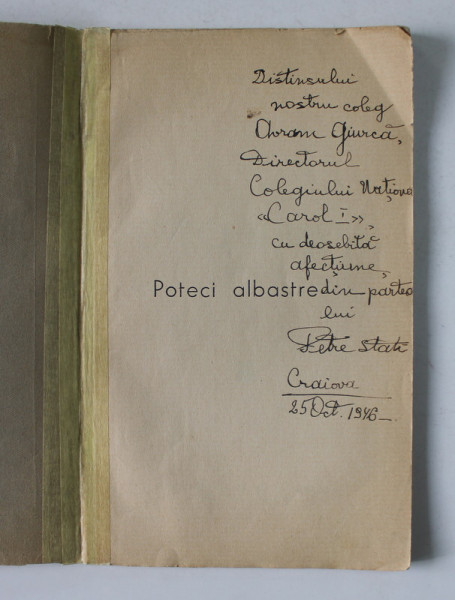 Distinsului
nostru coleg
Avram Giurcă,
Directorul
Colegiului Naționa
«Carol I»,
cu deosebită
afecțiune,
Poteci albastre din partea
lui
Petre Stati
Craiova
25 Oct. 1946